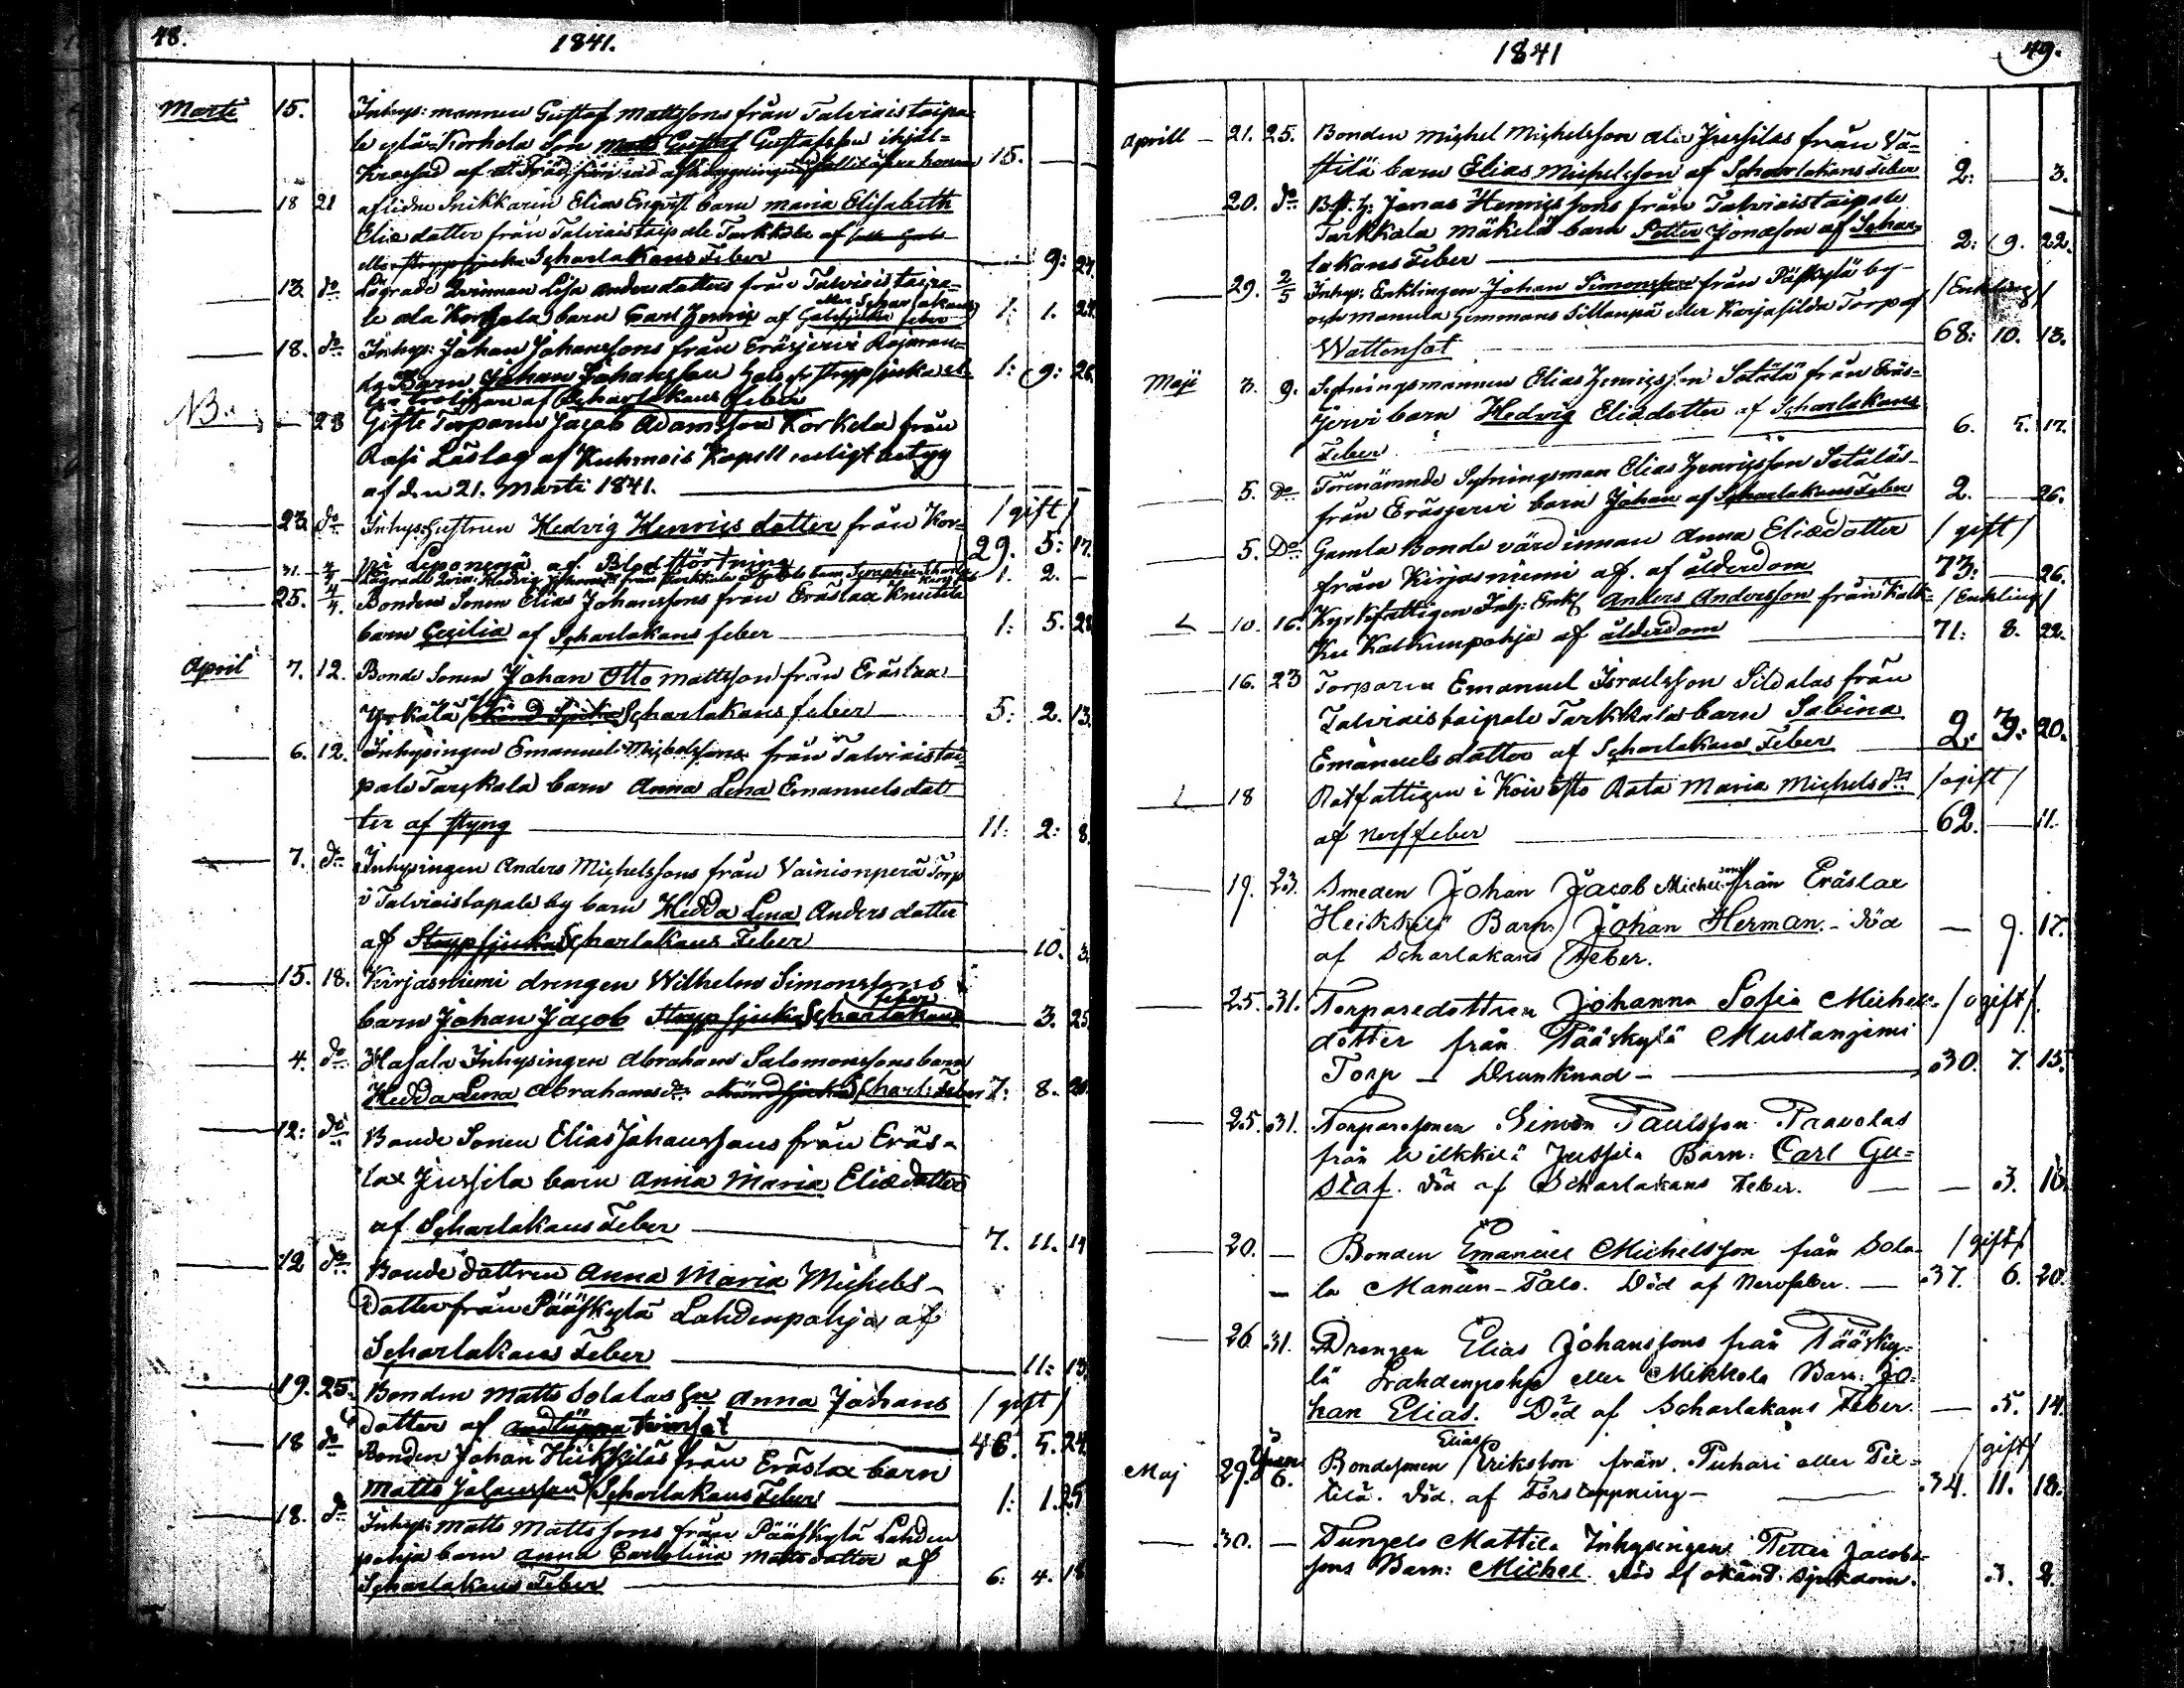 48.
1841.
Marti 15. Inhys: mannen Gustaf Mattssons från Talviaistaipa=
le ylä=Korhola Son Matts Gustaf Gustafsson ihjäl=
Krossad af ett Träd, som vid afhuggningen fallit öfver honom 15. —
18 21 aflidne Snikkarin Elias Enqvist barn Maria Elisabeth
Eliæ dotter från Talviaistaipale Tarkkala af
Scharlakans Feber — 9: 27.
13. do Lägrade Qvinnan Lisa Andersdotters från Talviaistaipa=
le ala Korhola barn Carl Henric af Halssjuka eller Scharlakans feber 1: 1. 24.
18. do Inhys: Johan Johanssons från Eräsjervi Rajaran=
da Barn Johan Johansson Hals och Strypsjuka el=
ler troligare af Scharlakans feber 1: 9: 26.
NB. — 28 Gifte Torparen Jacob Adamsson Korkela från
Rasi Läslag af Kuhmois Kapell enligt betyg
af den 21. Marti 1841. —
23. do Inhys: Hustrun Hedvig Henrics dotter från Kor= /gift/
pi Leponemä af Blodstörtning 29. 5: 17.
31. 4/4 Lägrade Qvin: Hedvig 1. 2. —
25. 4/4. Bonden Sonen Elias Johanssons från Eräslax Knuutila
barn Cecilia af Scharlakans feber — 1: 5. 28
April 7. 12. Bonde Sonen Johan Otto Mattsson från Eräslax
Yrkälä af okänd Sjuka Scharlakans feber — 5: 2. 13.
6. 12. Inhysingen Emanuel Michelssons från Talviaistai=
pale Tarkkala barn Anna Lena Emanuels dot
ter af styng — 11: 2: 8.
7. do Inhysingen Anders Michelssons från Vainionperä Torp
i Talviaistapale by barn Hedda Lena Anders dotter
af Strypsjuka Scharlakans Feber — 10. 3.
15. 18. Kirjasniemi drengen Wilhelm Simonssons
barn Johan Jacob Strypsjuka Scharlakans feber — 3. 25.
4. do Hasala Inhysingen Abraham Salomonssons barn
Hedda Lena Abrahamsdr okänd sjuka Scharl: Feber 7: 8. 20.
12: do Bonde Sonen Elias Johanssons från Eräs=
lax Jussila barn Anna Maria Eliædotter
af Scharlakans Feber — 7. 11. 14
12 do Bonde dottren Anna Maria Michels=
dotter från Pääskylä Lahdenpohja af
Scharlakans Feber — 11: 13.
19. 25. Bonden Matts Solalas Hu Anna Johans /gift/
dotter af andtäppa 46. 5. 24.
18 do Bonden Johan Heikkiläs från Eräslax barn
Matts Johansson Scharlakans Feber — 1: 1. 29
18. do Inhys: Matts Mattssons från Pääskylä Lahden
pohja barn Anna Carolina Matts dotter af
Scharlakans Feber — 6: 4. 18
1841
49.
Aprill — 21. 25. Bonden Michel Michelsson ala Jussilas från Vä=
stilä barn Elias Michelsson af Scharlakans Feber 2: — 3.
20. do Jonas Henricssons från Talviaistaipale
Tarkkala Mäkelä barn Petter Jonasson af Schar=
lakans Feber — 2: 9. 22.
29. 2/5 Inhys: Enklingen Johan Simonsson från Pääskylä by /Enkling/
och Manula Hemmans Sillanpä eller Karjasilda Torp af
Wattensot — 68: 10. 13.
Maji 3. 9. Sytningsmannen Elias Henricsson Setälä från Eräs=
jervi barn Hedvig Eliædotter af Scharlakans
Feber — 6. 5. 17.
5. Do Förenämnde Sytningsman Elias Henricsson Setäläs
från Eräsjervi barn Johan af Scharlakans Feber 2. — 26.
5. Do Gamla Bonde värdinnan Anna Eliædotter /gift/
från Kirjasniemi af. af ålderdom 73: 26.
10. 16. Kyrkofattigen Inh: Enkl Anders Andersson från Kalk= /Enkling/
Ku Kalkunpohja af ålderdom — 71: 8. 22.
16. 23 Torparen Emanuel Israelsson Sildalas från
Talviaistaipale Tarkkala barn Sabina
Emanuels dotter af Scharlakans Feber — 2: 3: 20.
18 Rotfattigen i Koivisto Rota Maria Michelsdr /ogift/
af Nerffeber — 62. — 11.
19. 23. Smeden Johan Jacob Michelssons från Eräslax
Heikkilä Barn Johan Herman. — död
af Scharlakans Feber. — 9. 17.
25. 31. Torparedottren Johanna Sofia Michels= /ogift/
dotter från Pääskylä Mustanjemi
Torp — Drunknad — 30. 7. 15.
25. 31. Torparesonen Simon Paulsson Paavolas
från Wilkkilä Jussila Barn: Carl Gu=
staf. död af Scharlakans Feber. — 3. 18.
20. — Bonden Emanuel Michelsson från Sola= /gift/
la Manun-Talo. Död af Nervfeber. — 37. 6. 20.
26 31. Drengen Elias Johanssons från Pääsky=
lä Lahdenpohja eller Mikkola Barn: Jo=
han Elias. Död af Scharlakans Feber. — 5. 14.
Maj 29. Juni 6. Bondesonen Elias Eriksson från Puhari eller Pie= /gift/
tilä. död. af Förstoppning — 34. 11. 18.
30. — Mattila Inhysingen Petter Jacobs=
sons Barn: Michel. död af okänd sjukdom. 3. 2.